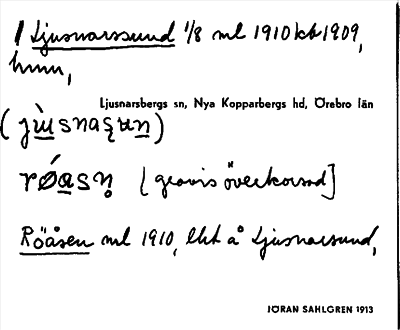 Ljusnarssund 1/8 ml 1910 kb 1909,
hmn,
Ljusnarsbergs sn, Nya Kopparbergs hd, Örebro län
[geavis överkorsad]
Röåsen ml 1910, lht å Ljusnarsund,
JÖRAN SAHLGREN 1913